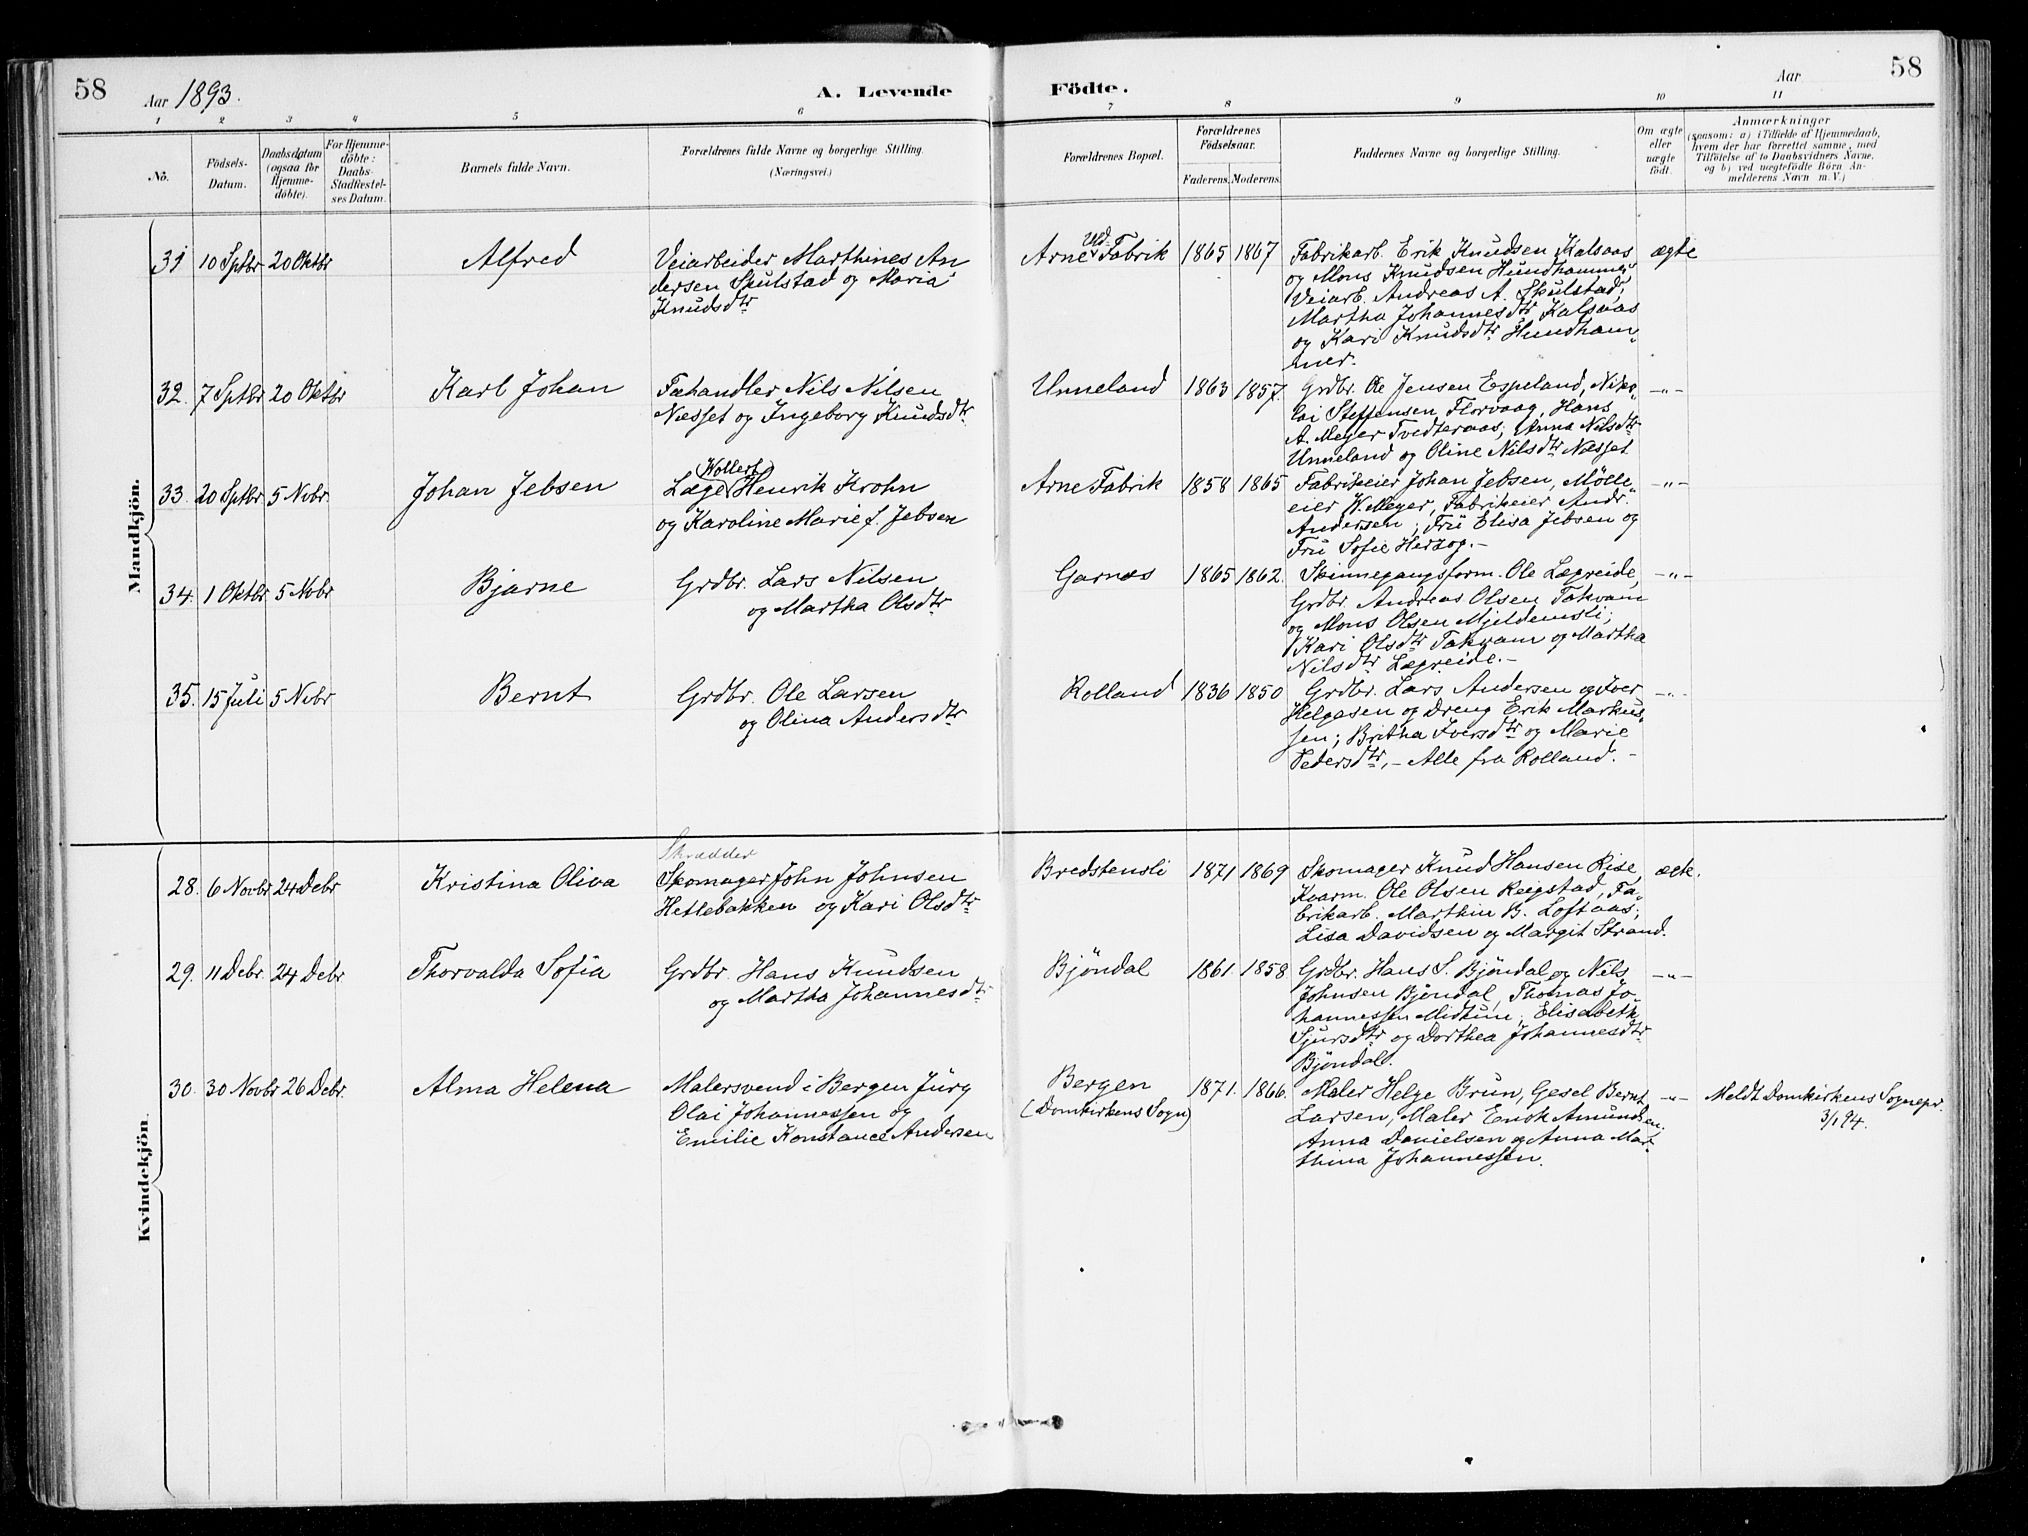 58
Aar 1893.
A. Levende
Födte.
Aar
58
1 2 3 4 5 6 7 8 9 10 11
No.
Födsels-Datum.
Daabsdatum (ogsaa for Hjemme-döbte).
For Hjemme-döbte: Daabs-Stadfæstel-ses Datum.
Barnets fulde Navn.
Forældrenes fulde Navne og borgerlige Stilling. (Næringsvei.)
Forældrenes Bopæl.
Forældrenes Födselsaar.
Faderens. Moderens.
Faddernes Navne og borgerlige Stilling.
Om ægte eller uægte födt.
Anmærkninger
(saasom: a) i Tilfælde af Hjemmedaab,
hvem der har forrettet samme, med
Tilföielse af to Daabsvidners Navne,
og b) ved uægtefödte Börn An-
melderens Navn m. V.)
Mandkjön.
31 10 Sptbr 20 Oktbr Alfred
Veiarbeider Marthines An
dersen Skulstad og Maria
Knudsdtr
Arne Uld Fabrik 1865 1867
Fabrikarb. Erik Knudsen Kalsaas
og Mons Knudsen Hundhammer,
Veiarb. Andreas A. Skulstad;
Martha Johannesdtr Kalsaas
og Kari Knudsdtr Hundham„
mer.
ægte
32. 7 Sptbr 20 Oktbr Karl Johan
Fæhandler Nils Nilsen
Næsset og Ingeborg Knudsdtr
Unneland 1863 1857.
Grdbr. Ole Jensen Espeland, Niko„
lai Steffensen Florvaag, Hans
A. Meyer Tvedteraas; Anna Nilsdtr
Unneland og Oline Nilsdtr Næsset
-"-
33. 20 Sptbr 5 Nvbr. Johan Jebsen
Læge Wollert Henrik Krohn
og Karoline Marie f. Jebsen
Arne Fabrik 1858 1865
Fabrikeier Johan Jebsen, Mølle„
eier W. Meyer, Fabrikeier Andr.
Andersen; Fru Elisa Jebsen og
Fru Sofie Herzog.-
-"-
34. 1 Oktbr 5 Nvbr Bjarne
Grdbr. Lars Nilsen
og Martha Olsdtr
Garnæs 1865 1862.
Skinnegangsform. Ole Lægreide,
Grdbr. Andreas Olsen Takvam
og Mons Olsen Mjeldemsli;
Kari Olsdtr Takvam og Martha
Nilsdtr Lægreide.-
-"-
35. 15 Juli 5 Nvbr Bernt
Grdbr. Ole Larsen
og Olina Andersdtr
Rolland 1836 1850
Grdbr. Lars Andersen og Iver
Helgesen og Dreng Erik Markus„
sen; Britha Iversdtr og Marie
Pedersdtr,- Alle fra Rolland.-
-"-
Kvindekjön.
28. 6 Novbr. 24 Debr Kristina Oliva
Skrædder
Skomager John Johnsen
Hetlebakken og Kari Olsdtr
Bredstensli 1871 1869
Skomager Knud Hansen Rise,
Kvarm. Ole Olsen Reigstad, Fa„
brikarb. Marthin B. Loftaas;
Lisa Davidsen og Margit Strand.
ægte.
29. 11 Debr. 24 Debr. Thorvalda Sofia
Grdbr. Hans Knudsen
og Martha Johannesdtr
Bjöndal 1861. 1858
Grdbr. Hans S. Bjöndal og Nels
Johnsen Bjöndal, Thomas Jo„
hannessen Midtun; Elisabeth
Sjursdtr og Dorthea Johannesdtr
Bjöndal.
-"-
30. 30 Novbr 26 Debr. Alma Helena
Malersvend i Bergen Jürg
Olai Johannessen og
Emilie Konstance Andersen
Bergen
(Domkirkens Sogn)
1871. 1866.
Maler Helge Brun, Gesel Bernt
Larsen, Maler Enok Amundsen.
Anna Danielsen og Anna Mar„
thina Johannessen.
-"-
Meldt Domkirkens Sognepr.
3/1 94.